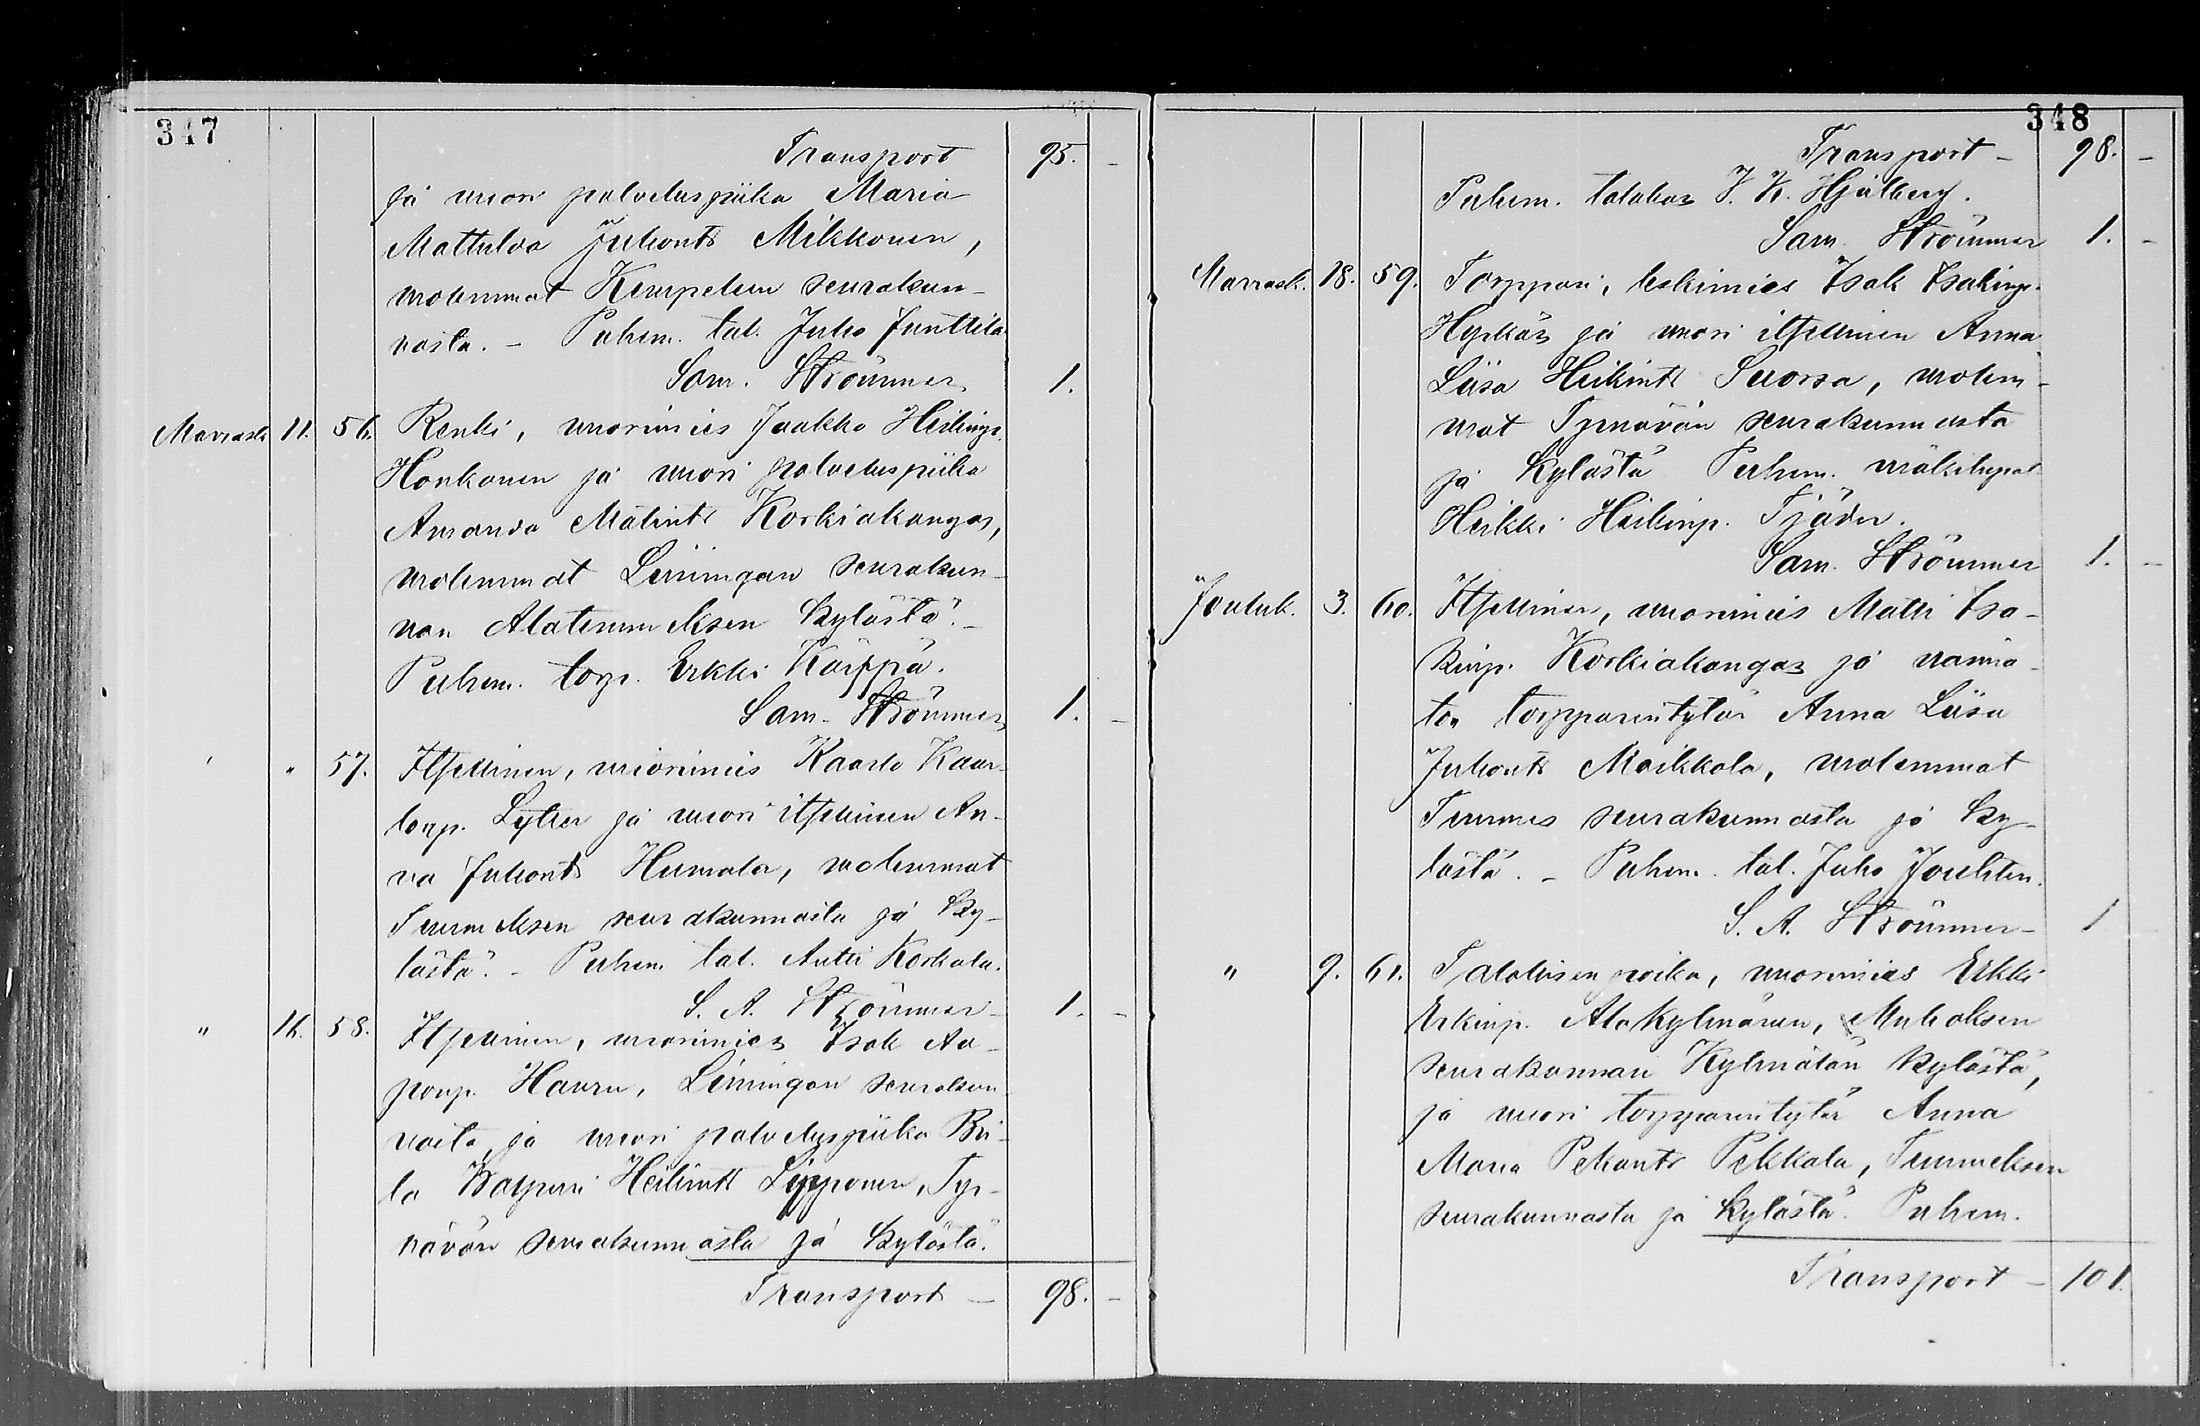 347
Transport 95. -
ja nuori palveluspiika Maria
Mattulva Juhont. Mikkonen,
molemmat Kempeleen seurakun-
nasta. - Puhem. tal. Juho Junttila
Sam. Strömmer 1.
Marrask 11. 56. Renki, nuorimies Jaakko Heikinp.
Honkanen ja nuori palveluspiika
Amanda Matint. Korkiakangas,
molemmat Limingan seurakun-
nan Alatemmeksen kylästä. -
Puhem. torp. Erkki Kärppä.
Sam. Strömmer 1. -
" " 57. Itsellinen, nuorimies Kaarlo Kaar-
lonp. Lytter ja nuori itsellinen An-
na Juhont. Humala, molemmat
Temmeksen seurakunnasta ja ky-
lästä. - Puhem. tal. Antti Korkala.
S. A. Strömmer - 1. -
" 16. 58. Itsellinen, nuorimies Isak Aa-
ponp. Hauru, Limingan seurakun-
nasta, ja nuori palveluspiika Brii-
ta Walpuri Heikintt Lipponen, Tyr-
nävän seurakunnasta ja kylästä.
Transport - 98. -
348
Transport - 98. -
Puhem. talokas J. K. Hjulberg.
Sam. Strömmer 1. -
Marrask. 18. 59. Torppari, leskimies Isak Isakinp.
Hyrkäs ja nuori itsellinen Anna
Liisa Heikintt Suorsa, molem-
mat Tyrnävän seurakunnasta
ja kylästä Puhem. mäkitupal
Heikki Heikinp. Tjäder.
Sam. Strömmer 1. -
Jouluk. 3. 60. Itsellinen, nuorimies Matti Isa-
kinp. Korkiakangas ja naima-
ton torpparintytär Anna Liisa
Juhont. Maikkola, molemmat
Temmes seurakunnasta ja ky-
lästä. - Puhem. tal. Juho Jouhten.
S. A. Strömmer - 1
" 9. 61. Talollisen poika, nuorimies Erkki
Erkinp. Alakylmänen, Muhoksen
seurakunnan Kylmälän kylästä,
ja nuori torpparintytär Anna
Maria Pekant. Pekkala, Temmeksen
seurakunnasta ja kylästä. Puhem.
Transport - 101.